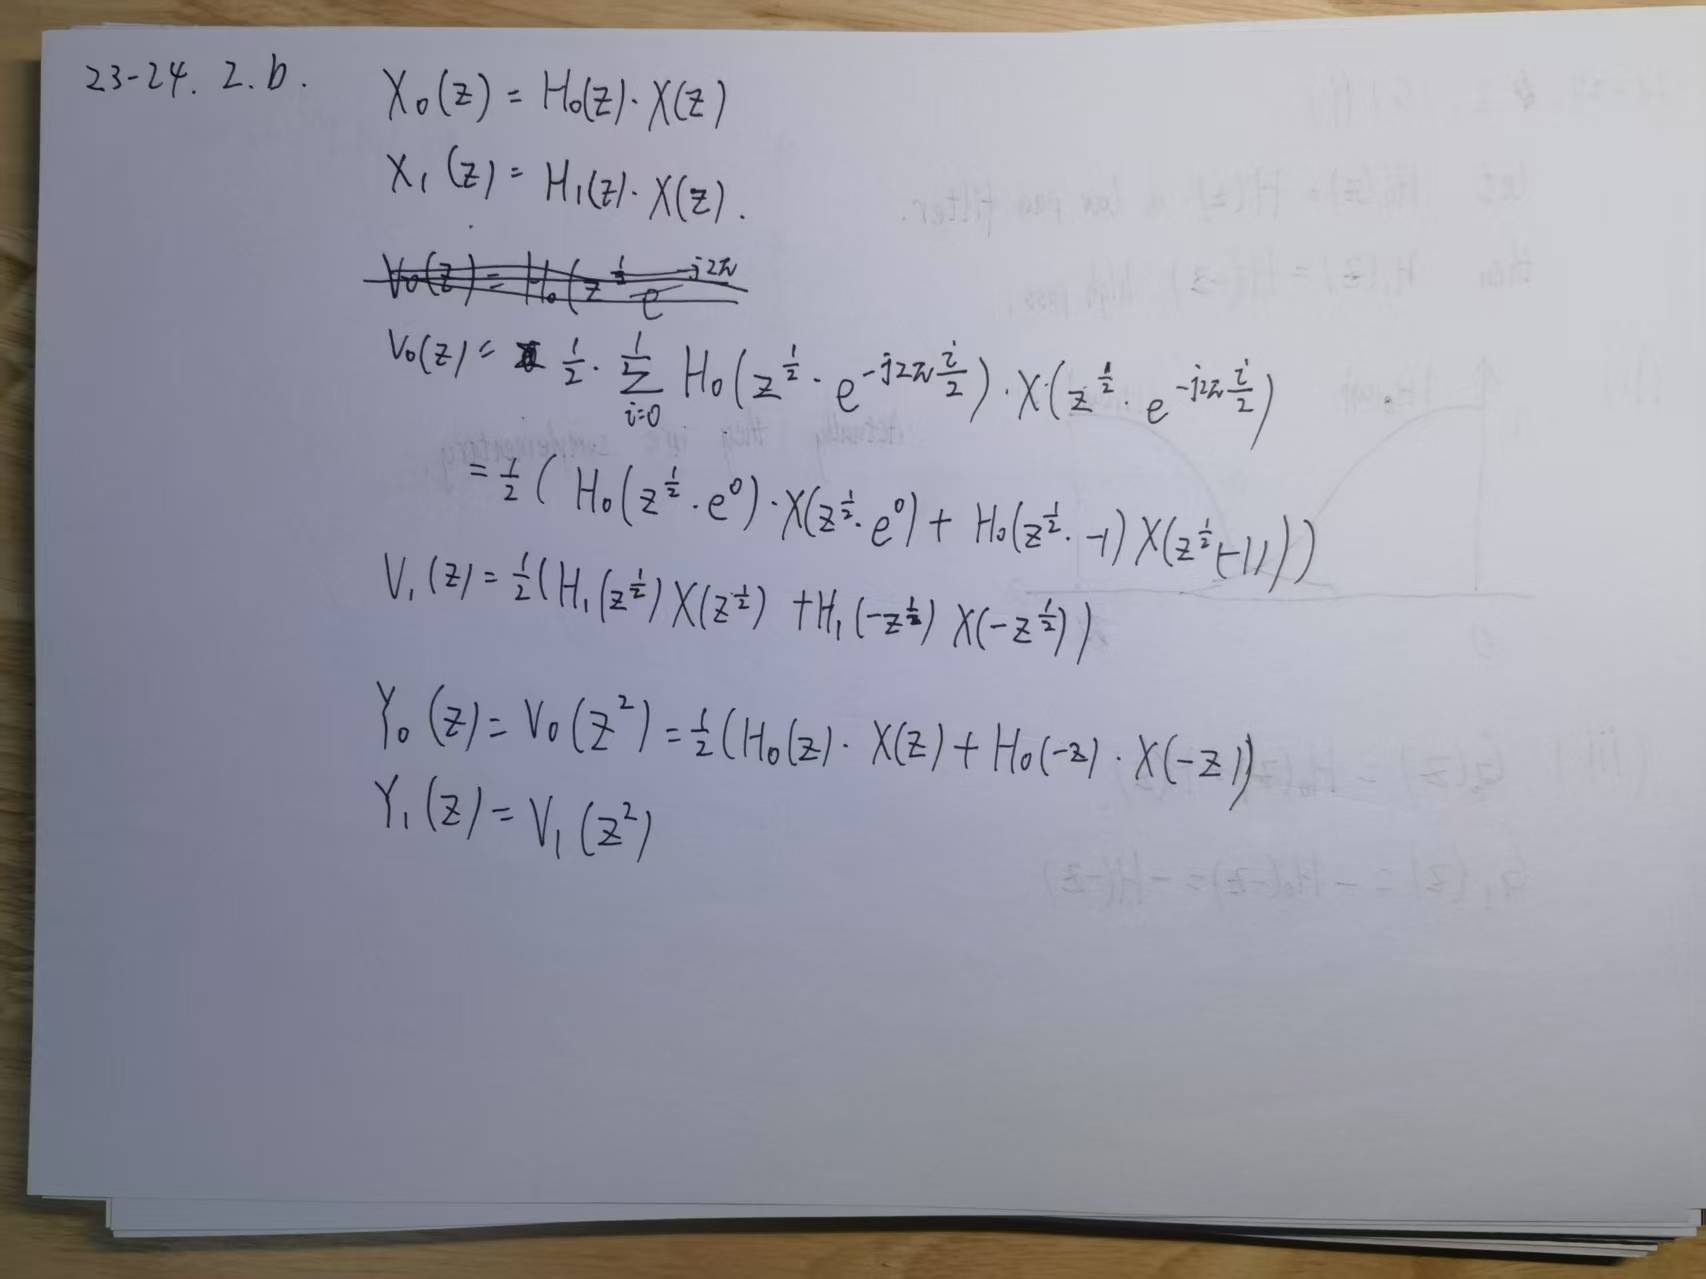 23-24. 2.b.
X₀(z) = H₀(z)·X(z)
X₁(z) = H₁(z)·X(z).
V₀(z) = ½· Σ_{i=0}^{1} H₀(z^{½}·e^{-j2π i/2})·X(z^{½}·e^{-j2π i/2})
= ½ (H₀(z^{½}·e⁰)·X(z^{½}·e⁰) + H₀(z^{½}·-1) X(z^{½}(-1)))
V₁(z) = ½(H₁(z^{½}) X(z^{½}) + H₁(-z^{½}) X(-z^{½}))
Y₀(z) = V₀(z²) = ½(H₀(z)·X(z) + H₀(-z)·X(-z))
Y₁(z) = V₁(z²)